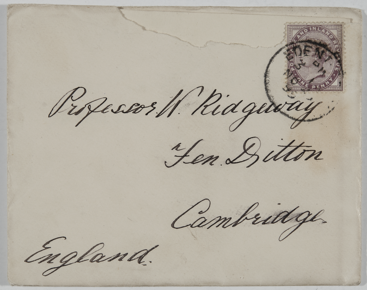 Professor W. Ridgeway
Fen Ditton
Cambridge.
England.